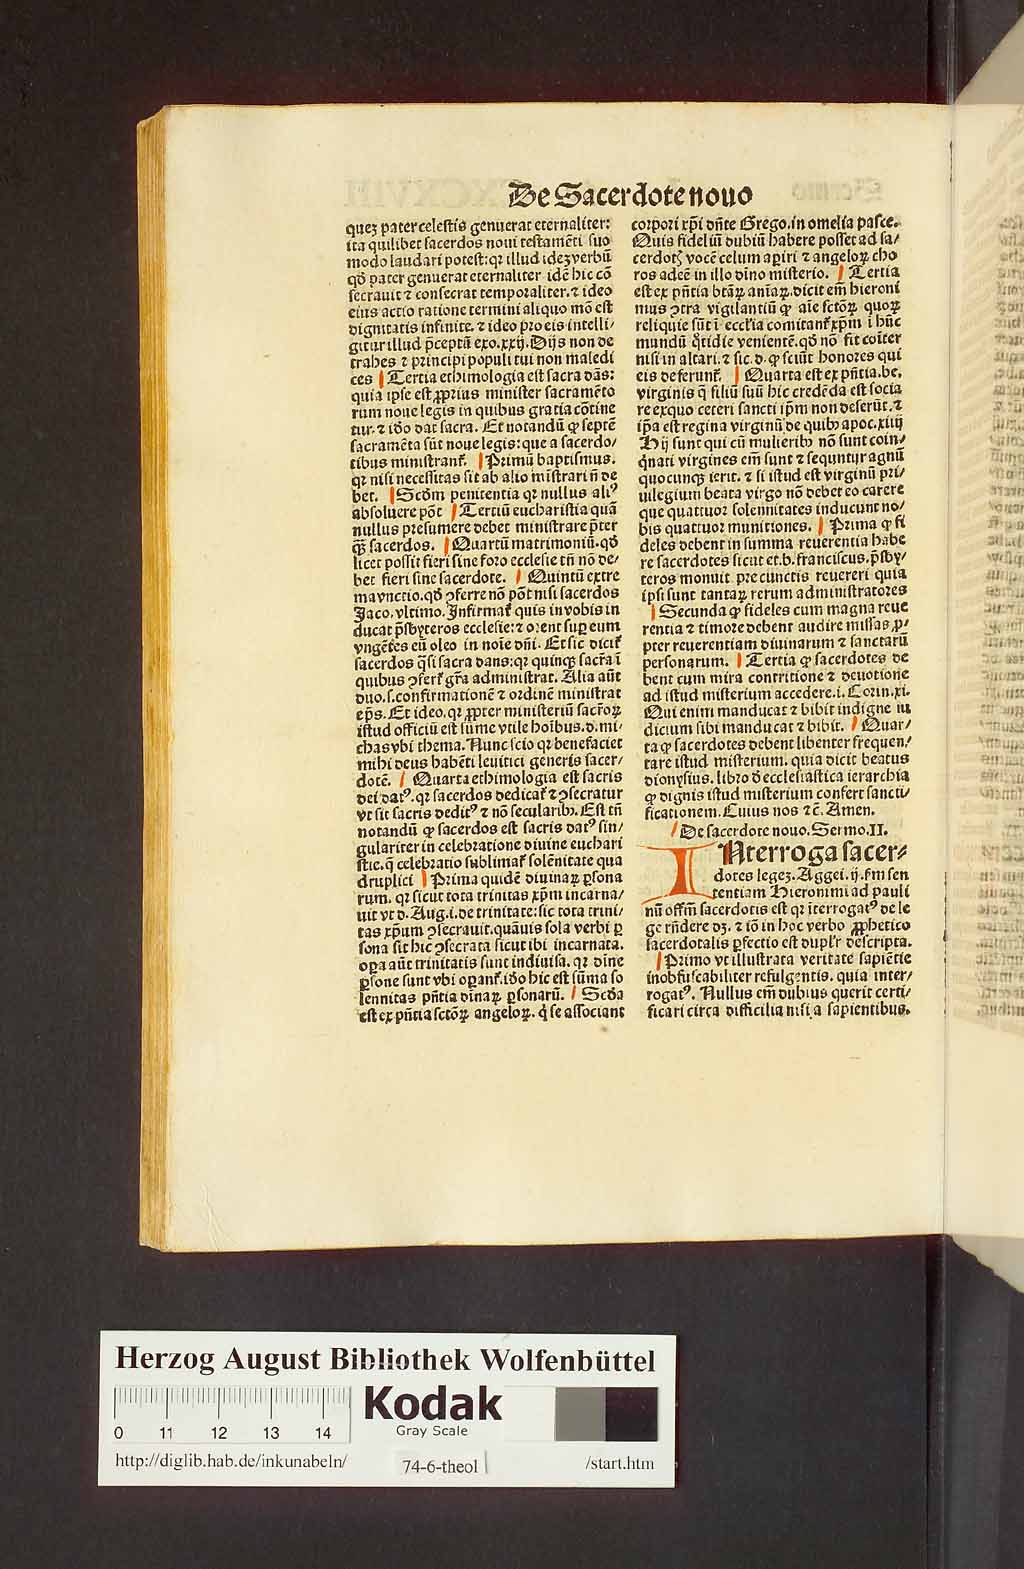 De Sacerdote nouo
quez pater celestis genuerat eternaliter:
ita quilibet sacerdos noui testamēti suo
modo laudari potest: qꝛ illud idez verbū
qd̄ pater genuerat eternaliter idē hic cō
secrauit ⁊ consecrat temporaliter. ⁊ ideo
eius actio ratione termini aliquo mō est
dignitatis infinite. ⁊ ideo pro eis intelli/
gitur illud p̄ceptū exo. xxij. Dijs non de
trahes ⁊ principi populi tui non maledi
ces Tertia ethimologia est sacra dās:
quia ipse est ꝓprius minister sacramēto
rum noue legis in quibus gratia cōtine
tur. ⁊ iđo dat sacra. Et notandū ꝙ septē
sacramēta sūt noue legis: que a sacerdo/
tibus ministranť. Primū baptismus.
qꝛ nisi necessitas sit ab alio mīstrari n̄ de
bet. Scđm penitentia qꝛ nullus aliꝰ
absoluere pōt Tertiū eucharistia quā
nullus presumere debet ministrare p̄ter
q̄ꝫ sacerdos. Quartū matrimoniū. qđ
licet possit fieri sine foro ecclesie tn̄ nō de/
bet fieri sine sacerdote. Quintū extre
ma vnctio. qđ ꝯferre nō pōt nisi sacerdos
Jaco. vltimo. Infirmať quis in vobis in
ducat p̄sbyteros ecclesie: ⁊ orent suꝑ eum
vngētes eū oleo in noīe dn̄i. Et sic dicit̄
sacerdos q̄si sacra dans: qꝛ quinqꝫ sacr̄a ī
quibus ꝯferť gr̄a administrat. Alia aūt
duo. s. confirmationē ⁊ ordinē ministrat
ep̄s. Et ideo. qꝛ ꝓpter ministeriū sacr̄oꝝ
istud officiū est sūme vtile hoībus. d. mi/
chas vbi thema. Nunc scio qꝛ benefaciet
mihi deus habēti leuitici generis sacer/
dotē. Quarta ethimologia est sacris
dei datꝰ. qꝛ sacerdos dedicať ⁊ ꝯsecratur
vt sit sacris deditꝰ ⁊ nō secularibꝫ. Est tn̄
notandū ꝙ sacerdos est sacris datꝰ sin/
gulariter in celebratione diuine euchari
stie. q̄ celebratio sublimať solēnitate qua
druplici Prima quidē diuinaꝝ ꝑsona
rum. qꝛ sicut tota trinitas xp̄m incarna/
uit vt d. Aug. i. de trinitate: sic tota trini/
tas xp̄um ꝯsecrauit. quāuis sola verbi ꝑ
sona sit hic ꝯsecrata sicut ibi incarnata.
oꝑa aūt trinitatis sunt indiuisa. qꝛ diīne
ꝑsone sunt vbi oꝑanť. iđo hic est sūma so
lennitas pn̄tia diīnaꝝ ꝑsonarū. Scđa
est ex pn̄tia sctōꝝ angeloꝝ. q̇ se associant
corpori xp̄i dn̄te Grego. in omelia pasce.
Quis fideliū dubiū habere posset ad sa/
cerdotꝭ vocē celum aꝑiri ⁊ angeloꝝ cho
ros adeē in illo diīno misterio. Tertia
est ex pn̄tia btāꝝ anīaꝝ. dicit em̄ hieroni
mus ꝯtra vigilantiū ꝙ aīe sctōꝝ quoꝝ
reliquie sūt ī ecclīa comitanť xp̄m ī hūc
mundū q̊tidie venientē. qđ nō fit coīter
nisi in altari. ⁊ sic. d. ꝙ sciūt honores qui
eis deferunť. Quarta est ex pn̄tia. be.
virginis q̄ filiū suū hic credēda est socia
re exquo ceteri sancti ip̄m non deserūt. ⁊
ip̄a est regina virginū de quibꝫ apoc. xiiij
Hij sunt qui cū mulieribꝫ nō sunt coin/
q̇nati virgines em̄ sunt ⁊ sequntur agnū
quocunqꝫ ierit. ⁊ si istud est virginū pri/
uilegium beata virgo nō debet eo carere
que quattuor solennitates inducunt no/
bis quattuor munitiones. Prima ꝙ fi
deles debent in summa reuerentia habe
re sacerdotes sicut et. b. franciscus. p̄sby/
teros monuit pre cunctis reuereri quia
ipsi sunt tantaꝝ rerum administratores
Secunda ꝙ fideles cum magna reue
rentia ⁊ timore debent audire missas ꝓ/
pter reuerentiam diuinarum ⁊ sanctarū
personarum. Tertia ꝙ sacerdotes de
bent cum mira contritione ⁊ deuotione
ad istud misterium accedere. i. Corin. xi.
Qui enim manducat ⁊ bibit indigne iu
dicium sibi manducat ⁊ bibit. Quar/
ta ꝙ sacerdotes debent libenter frequen/
tare istud misterium. quia dicit beatus
dionysius. libro đ ecclesiastica ierarchia
ꝙ dignis istud misterium confert sancti/
ficationem. Cuius nos ⁊c̄. Amen.
De sacerdote nouo. Sermo. II.
INterroga sacer/
dotes legez. Aggei. ij. sm̄ sen
tentiam Hieronimi ad pauli
nū offm̄ sacerdotis est qꝛ īterrogatꝰ de le
ge rn̄dere dꝫ. ⁊ iō in hoc verbo ꝓphetico
sacerdotalis ꝑfectio est dupl̄r descripta.
Primo vt illustrata veritate sapiētie
inobfuscabiliter refulgentis. quia inter/
rogatꝰ. Nullus em̄ dubius querit certi/
ficari circa difficilia nisi a sapientibus.
Herzog August Bibliothek Wolfenbüttel
0 11 12 13 14
Kodak
Gray Scale
http://diglib.hab.de/inkunabeln/
74-6-theol
/start.htm